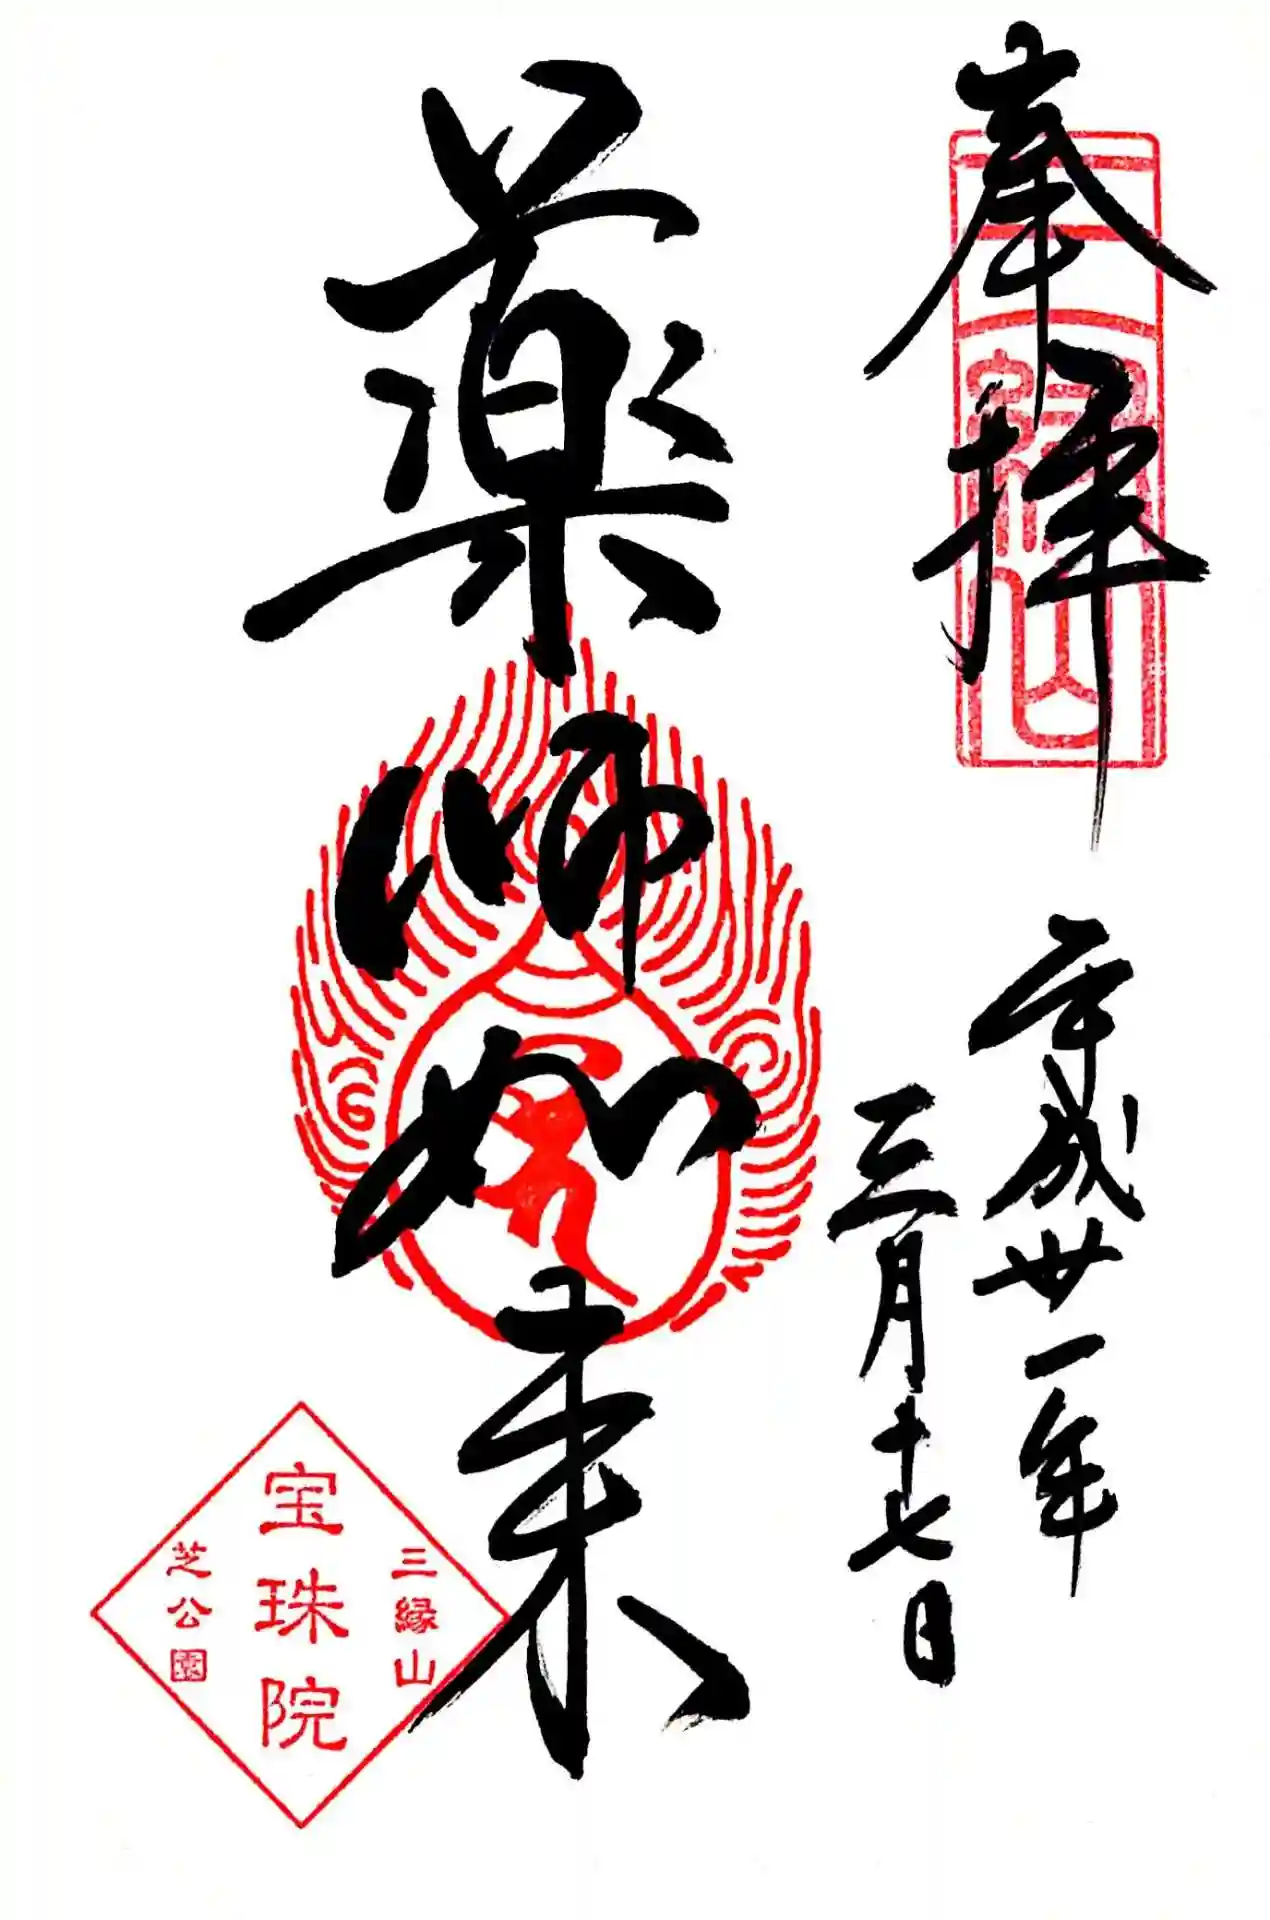 奉拝
三縁山
平成卅一年
三月十七日
薬師如来
三縁山
宝珠院
芝公園